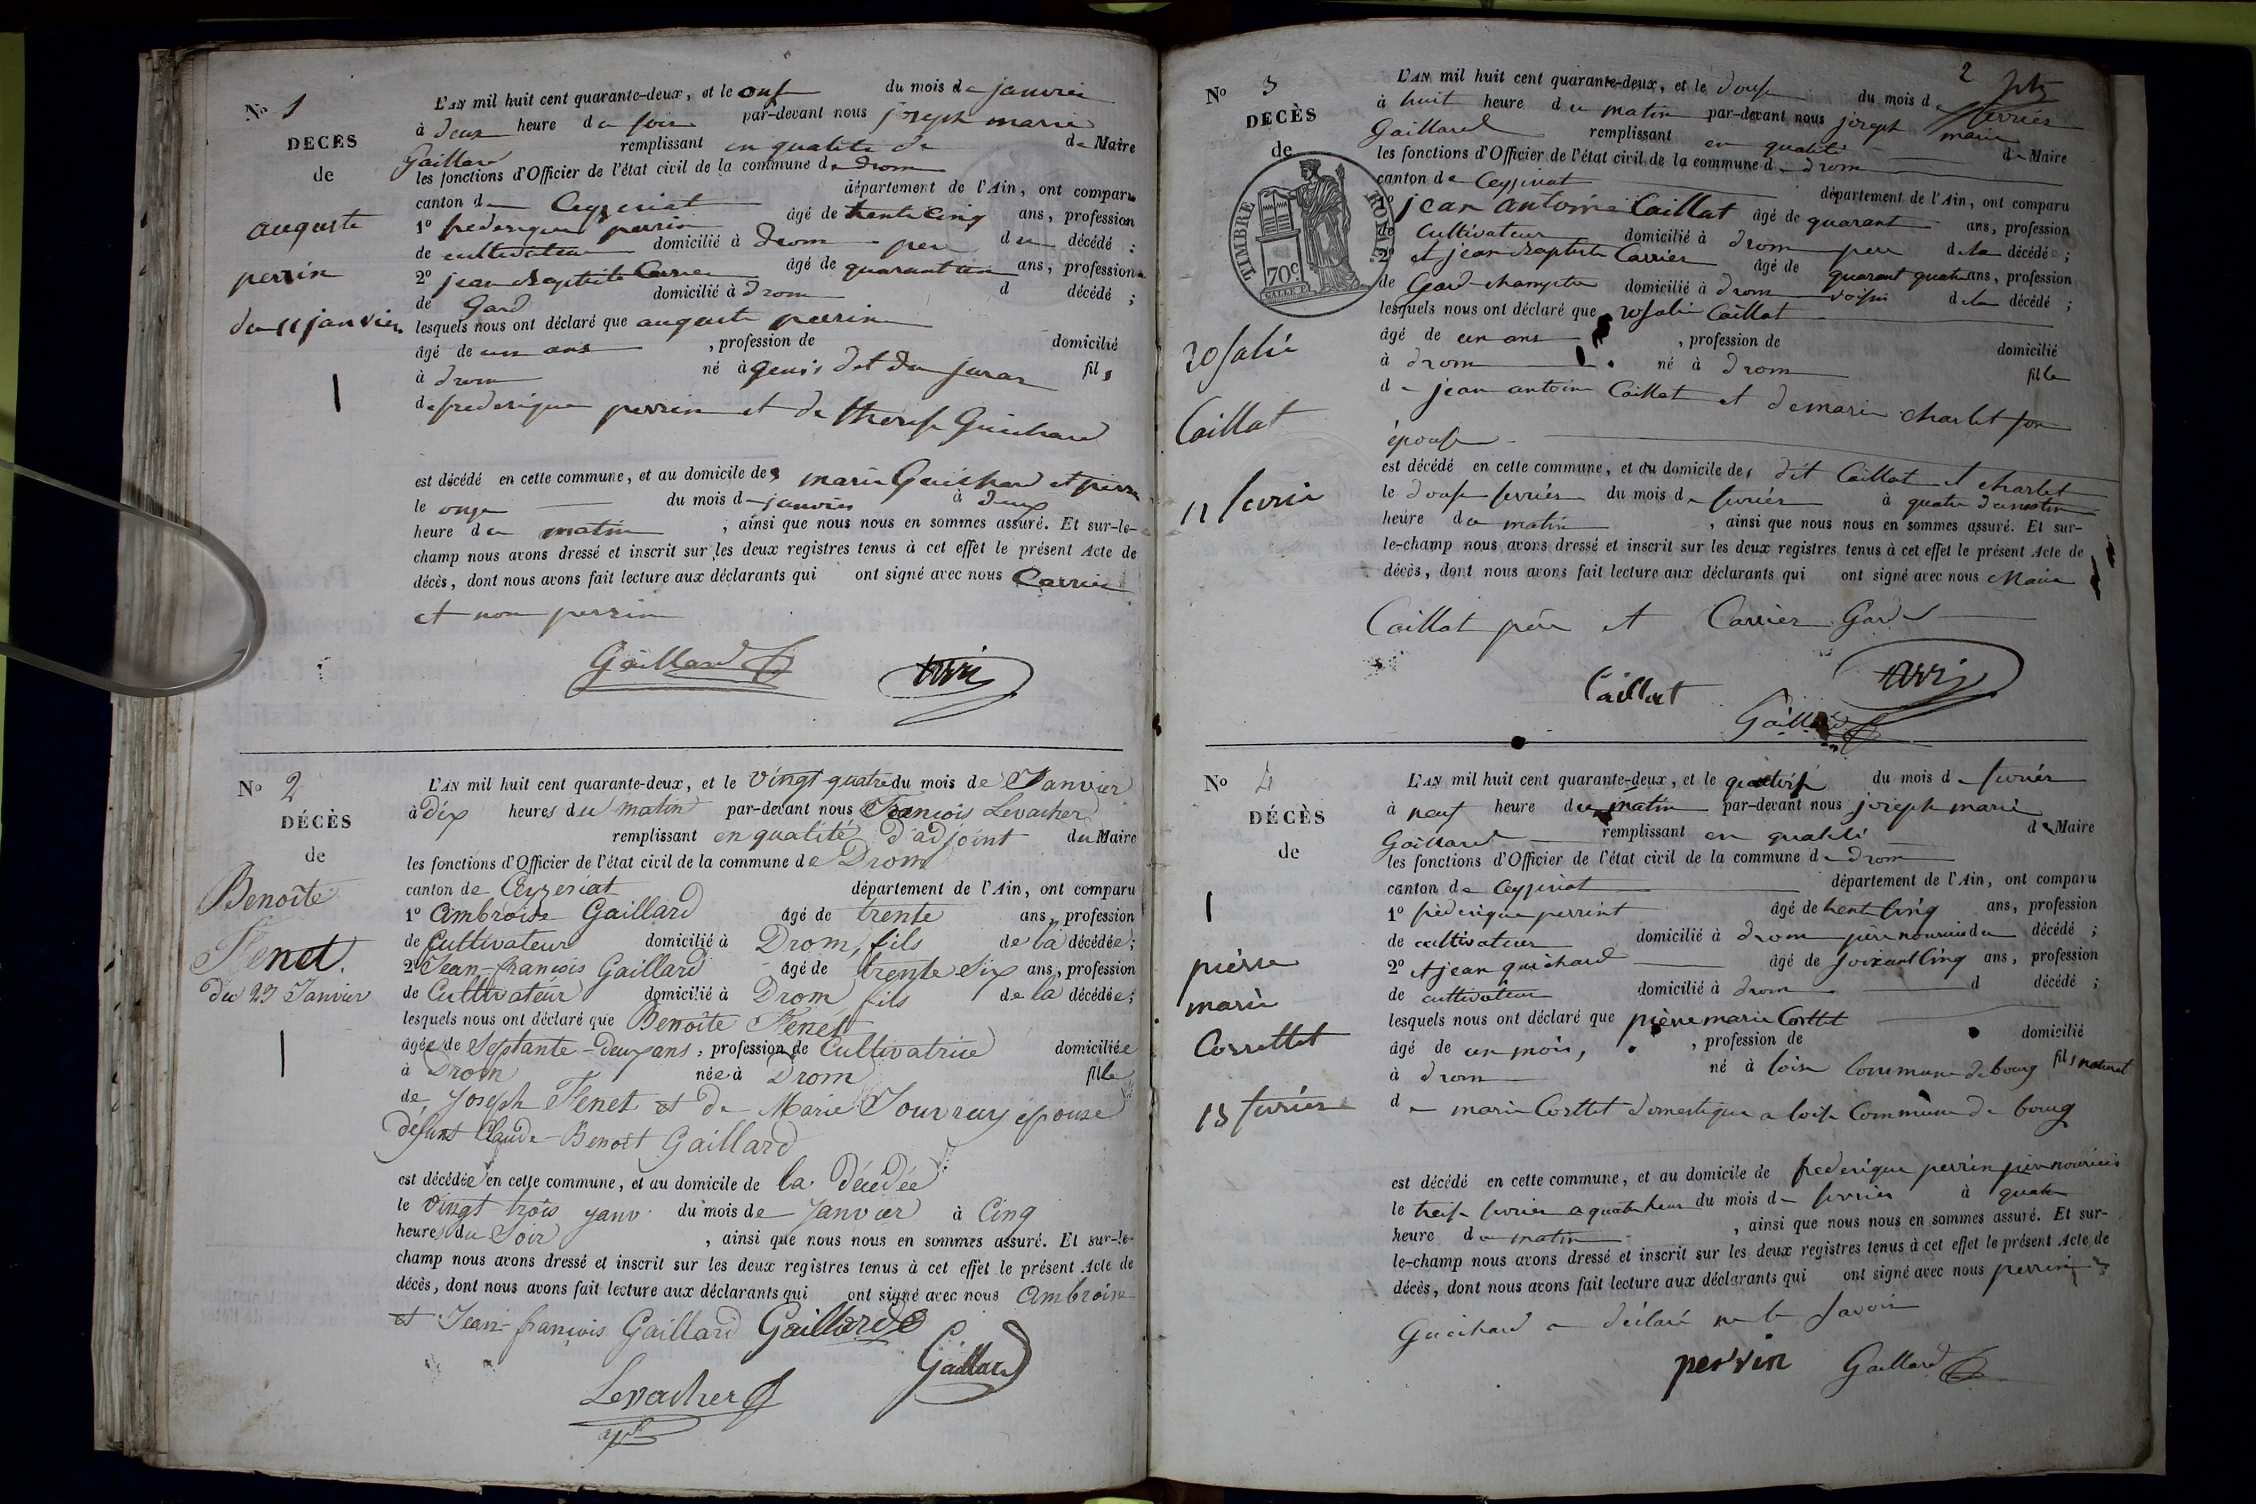 No 1
DECES
de
auguste
perrin
du 11 janvier
L'AN mil huit cent quarante-deux, et le onse du mois de janvier
à deux heure du soir par-devant nous joseph marie
Gaillard remplissant en qualité de de Maire
les fonctions d'Officier de l'état civil de la commune de drom
canton de Ceyzeriat département de l'Ain, ont comparu
1º frederique perrin âgé de trente cinq ans, profession
de cultivateur domicilié à drom père du décédé ;
2º jean baptiste Carrier âgé de quarant ans, profession
de Gard domicilié à drom d décédé ;
lesquels nous ont déclaré que auguste perrin
âgé de un ans , profession de domicilié
à drom né à genis det du juras fils
de frederique perrin et de therese Guichard
est décédé en cette commune, et au domicile des marie Guichard et perrin
le onze du mois de janvier à deux
heure du matin ; ainsi que nous nous en sommes assuré. Et sur-le-
champ nous avons dressé et inscrit sur les deux registres tenus à cet effet le présent Acte de
décès, dont nous avons fait lecture aux déclarants qui ont signé avec nous Carrier
et non perrin
Gaillard
No 2
DÉCÈS
de
Benoîte
Fenet.
du 23 Janvier
L'AN mil huit cent quarante-deux, et le vingt quatre du mois de Janvier
à dix heures du matin par-devant nous François Levacher
remplissant en qualité d'adjoint du Maire
les fonctions d'Officier de l'état civil de la commune de Drom
canton de Ceyzeriat département de l'Ain, ont comparu
1º Ambroise Gaillard âgé de trente ans, profession
de Cultivateur domicilié à Drom, fils de la décédée ;
2º Jean-françois Gaillard âgé de trente Six ans, profession
de Cultivateur domicilié à Drom fils de la décédée ;
lesquels nous ont déclaré que Benoîte Fenet
âgée de Septante-deux ans, profession de Cultivatrice domiciliée
à Drom née à Drom fille
de Joseph Fenet et de Marie Souvray épouse
défunt Claude-Benoît Gaillard
est décédée en cette commune, et au domicile de la Décédée
le vingt trois janv. du mois de Janvier à Cinq
heures du Soir , ainsi que nous nous en sommes assuré. Et sur-le-
champ nous avons dressé et inscrit sur les deux registres tenus à cet effet le présent Acte de
décès, dont nous avons fait lecture aux déclarants qui ont signé avec nous Ambroise
et Jean-françois Gaillard Gaillard
Gaillard
Levacher
2
No 3
DECÈS
de
TIMBRE ROYAL
70c
rosalie
Caillat
11 fevrie
L'AN mil huit cent quarante-deux, et le douse du mois de fevrier
à huit heure du matin par-devant nous joseph marie
Gaillard remplissant en qualité de Maire
les fonctions d'Officier de l'état civil de la commune d drom
canton de Ceyzeriat département de l'Ain, ont comparu
1º jean antoine Caillat âgé de quarant ans, profession
de Cultivateur domicilié à drom pere de la décédé ;
2º et jean baptiste Carrier âgé de quarant quatre ans, profession
de Gard-champetre domicilié à drom voisin de la décédé ;
lesquels nous ont déclaré que rosalie Caillat
âgé de un ans , profession de domicilié
à drom né à drom fille
de jean antoine Caillat et de marie charlet son
épouse
est décédé en cette commune, et au domicile des dit Caillat et charlet
le douse fevrier du mois de fevrier à quatre du matin
heure du matin , ainsi que nous nous en sommes assuré. Et sur-
le-champ nous avons dressé et inscrit sur les deux registres tenus à cet effet le présent Acte de
décès, dont nous avons fait lecture aux déclarants qui ont signé avec nous Maire
Caillat père et Carrier Garde
Caillat
Gaillard
No 4
DÉCÈS
de
pièrre
marie
Correttet
13 fevrier
L'AN mil huit cent quarante-deux, et le quatorse du mois de fevrier
à neuf heure du matin par-devant nous joseph marie
Gaillard remplissant en qualité de Maire
les fonctions d'Officier de l'état civil de la commune de drom
canton de Ceyzeriat département de l'Ain, ont comparu
1º frederique perrint âgé de trente cinq ans, profession
de cultivateur domicilié à drom père nouricie du décédé ;
2º et jean guichard âgé de soixant cinq ans, profession
de cultivateur domicilié à drom d décédé ;
lesquels nous ont déclaré que pièrre marie Corttet
âgé de un mois, , profession de domicilié
à drom né à loise Commune de bourg fils naturel
de marie Corttet domestique a loise Commune de bourg
est décédé en cette commune, et au domicile de frederique perrin père nouricie
le treise fevrier a quatre heur du mois de fevrier à quatre
heure du matin , ainsi que nous nous en sommes assuré. Et sur-
le-champ nous avons dressé et inscrit sur les deux registres tenus à cet effet le présent Acte de
décès, dont nous avons fait lecture aux déclarants qui ont signé avec nous perrin
Guichard a déclaré ne le savoir
perrin Gaillard